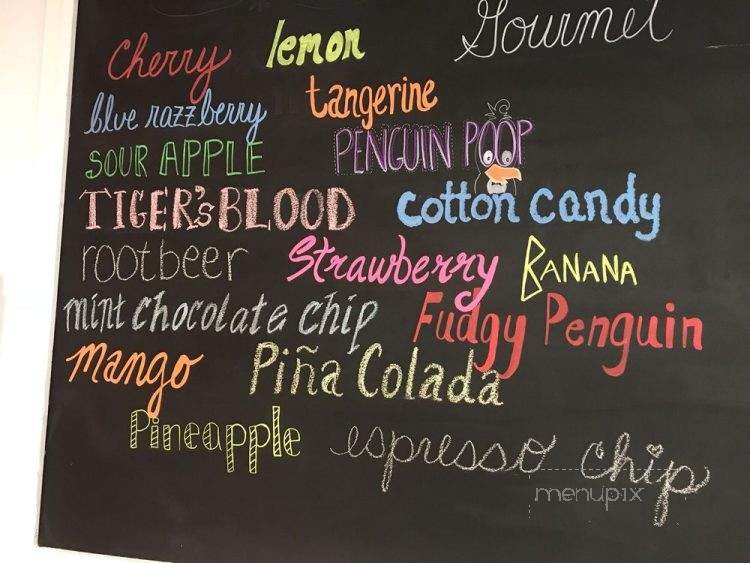 Gourmet
Cherry lemon
blue razzberry tangerine
SOUR APPLE PENGUIN POOP
TIGER'S BLOOD cotton candy
rootbeer Strawberry BANANA
mint chocolate chip Fudgy Penguin
Mango Piña Colada
Pineapple espresso chip
menupix